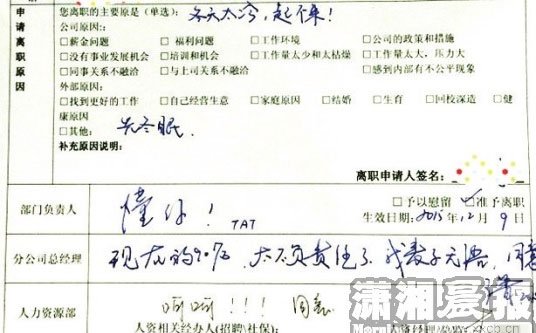 申请离职原因
您离职的主要原是(单选): 冬天太冷,起不来!
公司原因:
□薪金问题 □福利问题 □工作环境 □公司的政策和措施
□没有事业发展机会 □培训和机会 □工作量太少和太枯燥 □工作量太大,压力大
□同事关系不融洽 □与上司关系不融洽 □感到内部有不公平现象
外部原因:
□找到更好的工作 □自己经营生意 □家庭原因 □结婚 □生育 □回校深造 □健
康原因
□其他: 先冬眠.
补充原因说明:
离职申请人签名:
部门负责人 懂你! TAT
□予以慰留 □准予离职
生效日期: 2015年12月9日
分公司总经理 现在的90后 太不负责任了 我表示无语,同意
人力资源部 呵呵!!! 同意
人资相关经办人(招聘/社保):
潇湘晨报